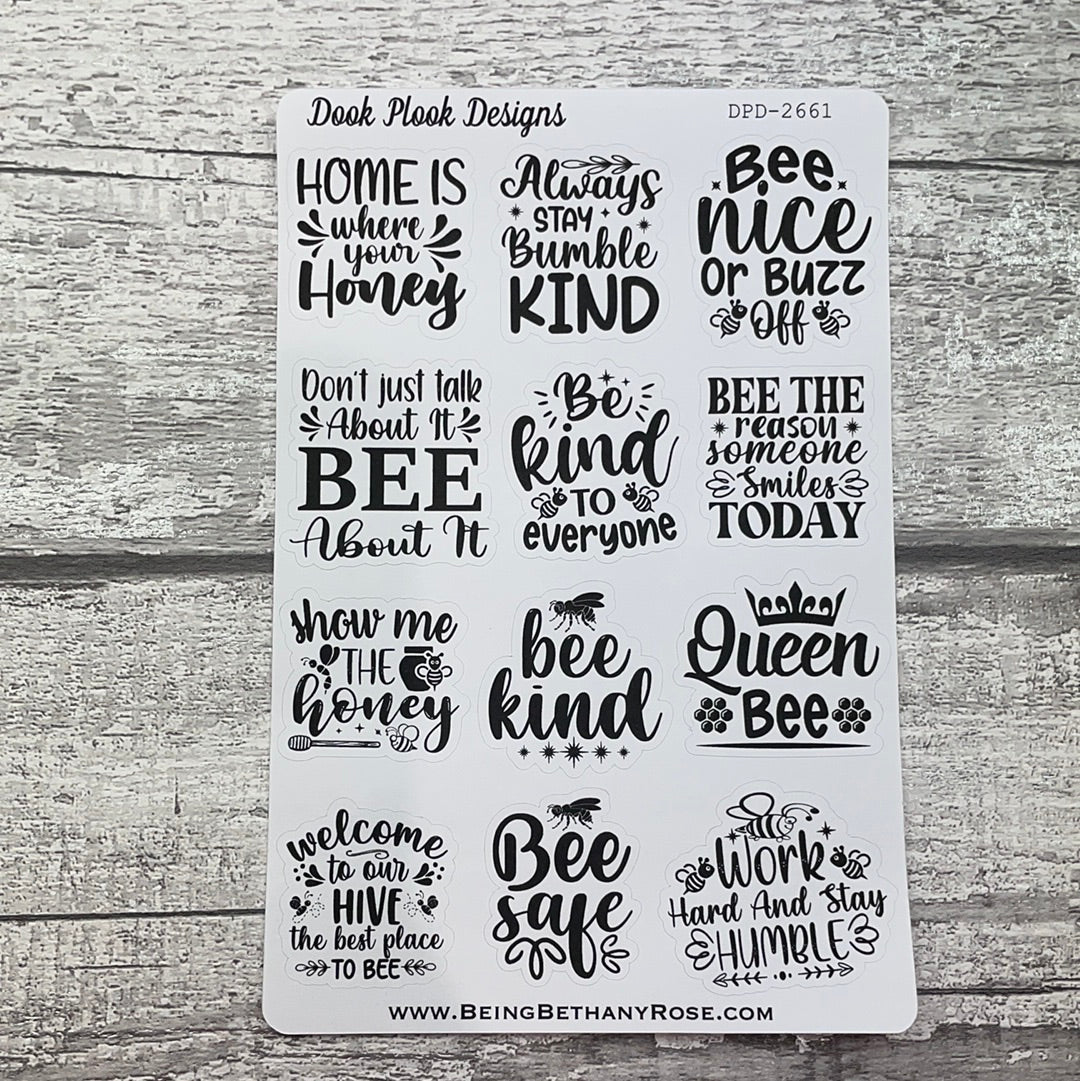 Dook Plook Designs
DPD-2661
HOME IS
where
your
Honey
Always
STAY
Bumble
KIND
Bee
nice
Or BUZZ
Off
Don't just talk
About It
BEE
About It
Be
kind
TO
everyone
BEE THE
reason
someone
Smiles
TODAY
show me
THE
honey
bee
kind
Queen
Bee
welcome
to our
HIVE
the best place
TO BEE
Bee
safe
Work
Hard And Stay
HUMBLE
www.BeingBethanyRose.com